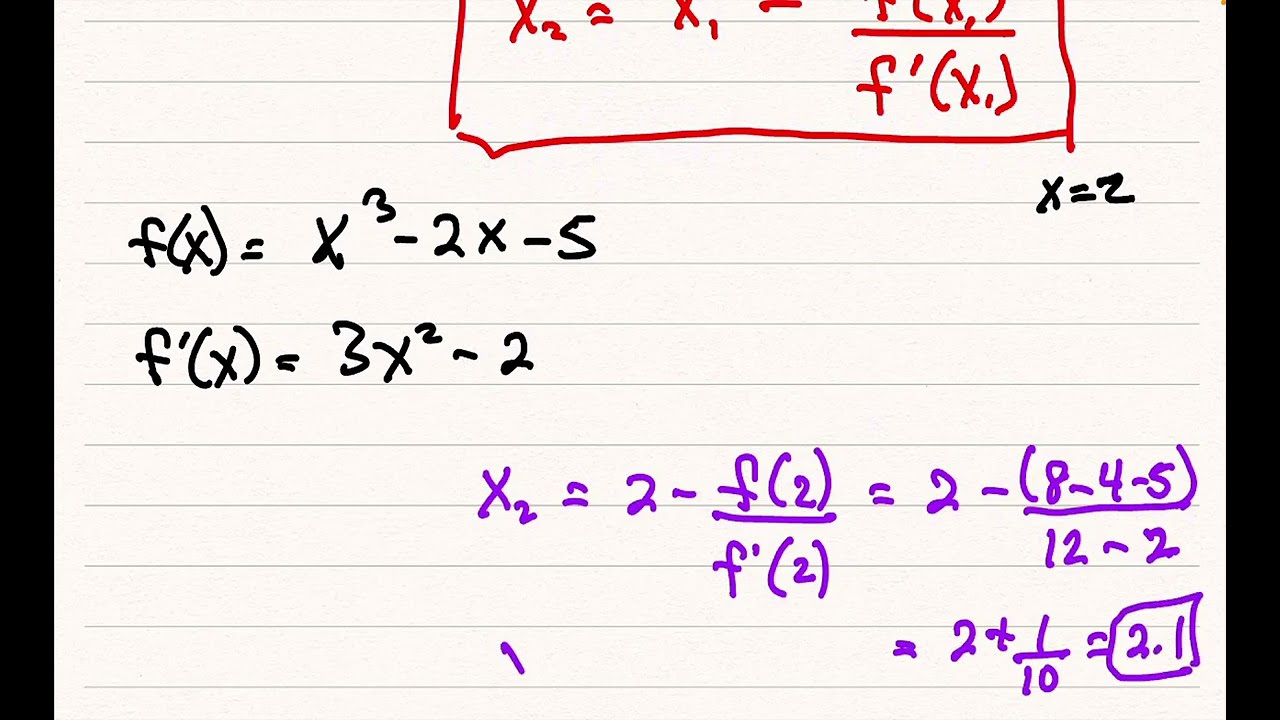 x₂ = x₁ - f(x₁)/f'(x₁)
x=2
f(x) = x³-2x-5
f'(x) = 3x²-2
x₂ = 2 - f(2)/f'(2) = 2 - (8-4-5)/12-2
= 2 + 1/10 = 2.1